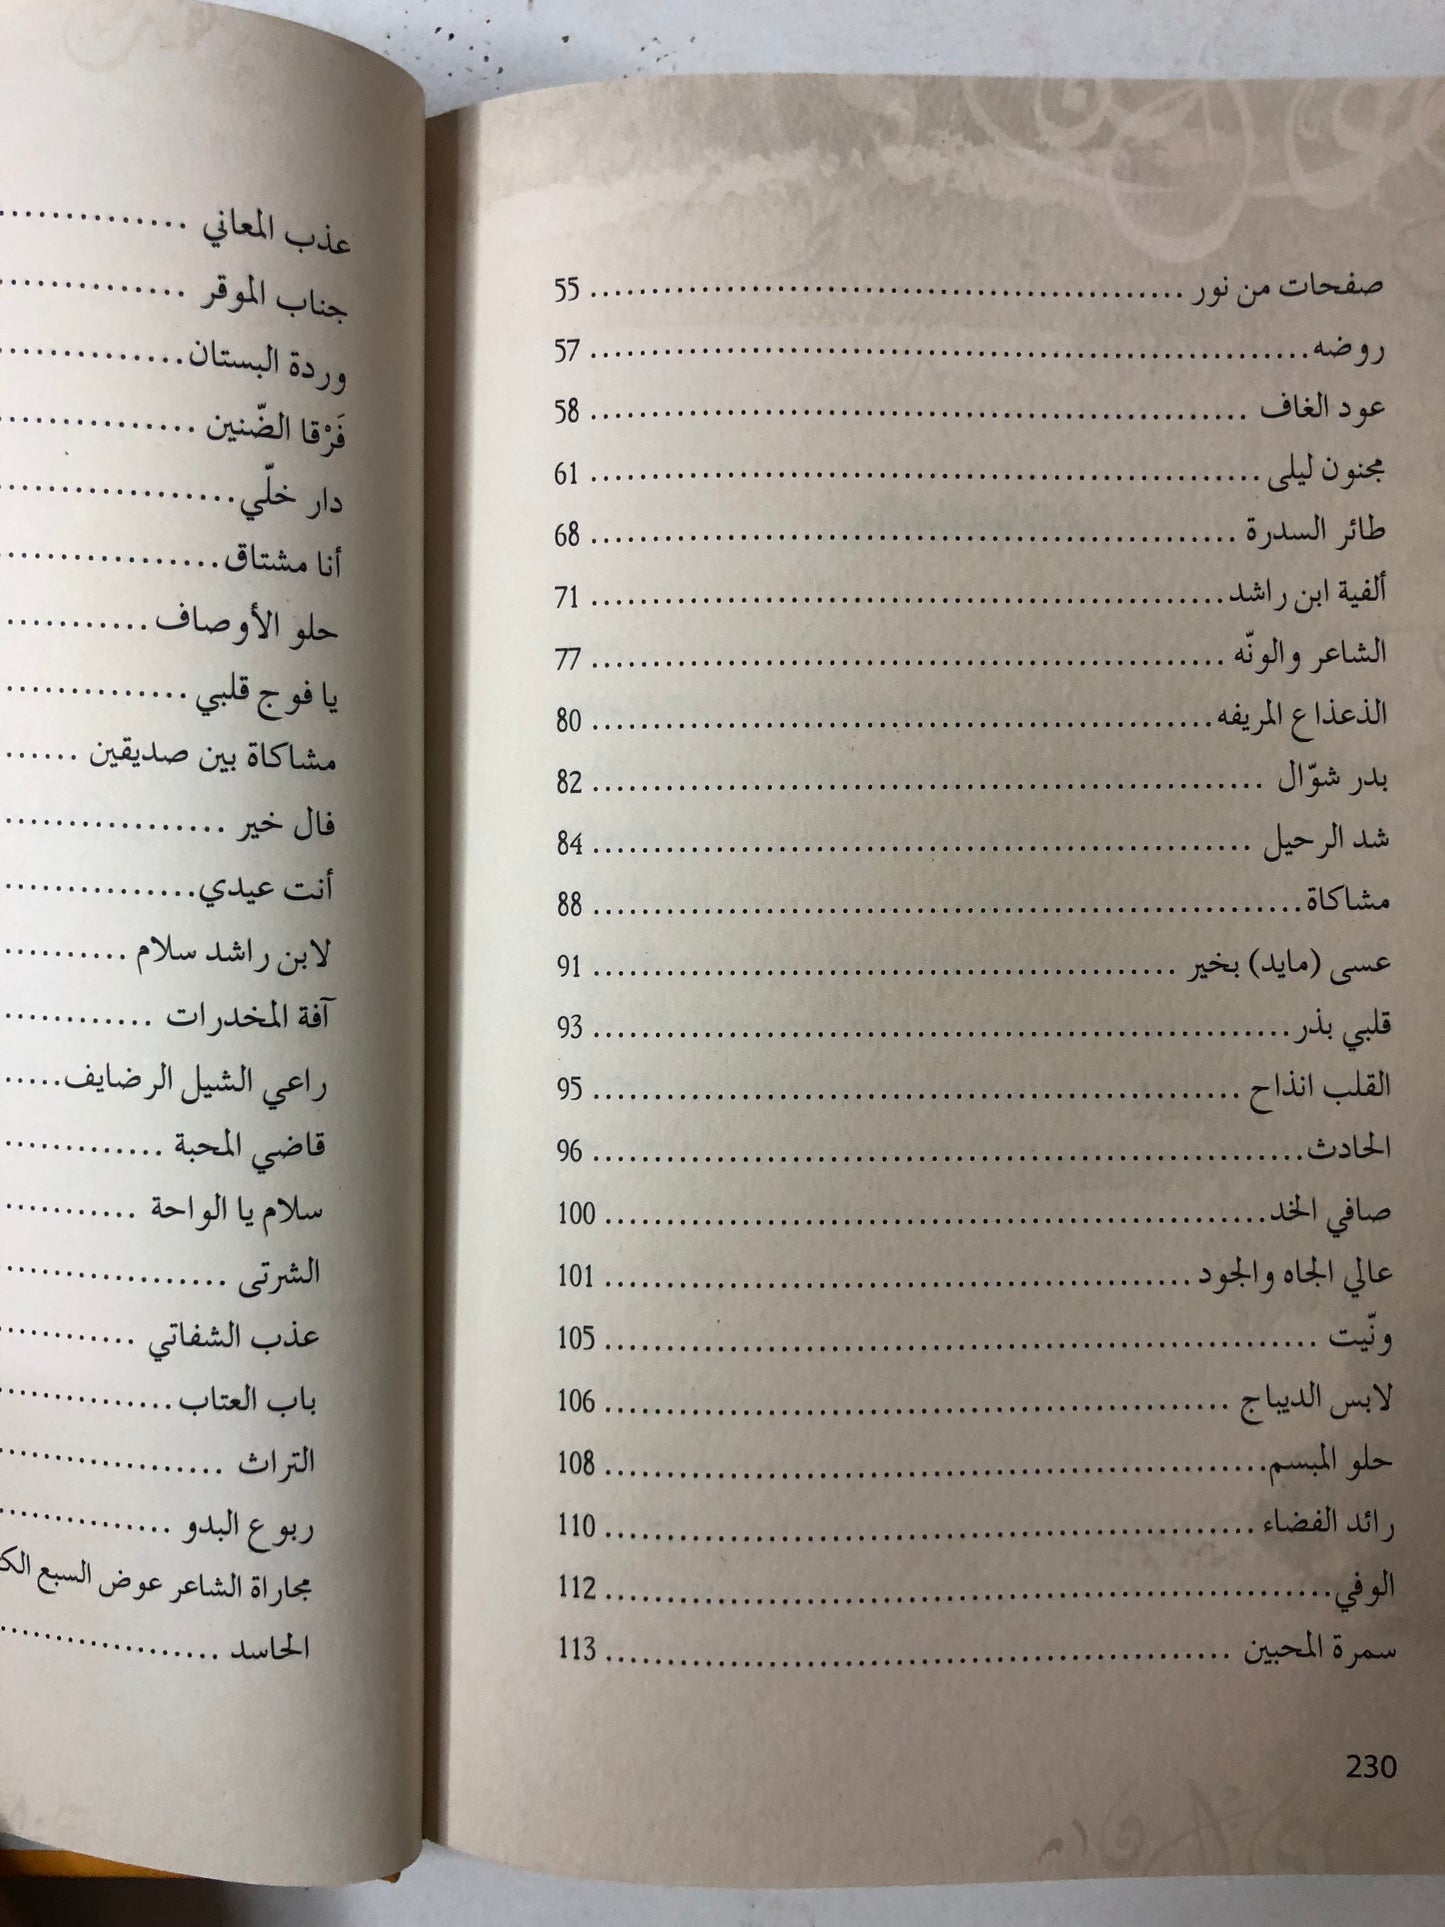 صفحات من نور ........ 55
روضه ........ 57
عود الغاف ........ 58
مجنون ليلى ........ 61
طائر السدرة ........ 68
ألفية ابن راشد ........ 71
الشاعر والونّه ........ 77
الذعذاع المريفه ........ 80
بدر شوّال ........ 82
شد الرحيل ........ 84
مشاكاة ........ 88
عسى (مايد) بخير ........ 91
قلبي بذر ........ 93
القلب انذاح ........ 95
الحادث ........ 96
صافي الخد ........ 100
عالي الجاه والجود ........ 101
ونّيت ........ 105
لابس الديباج ........ 106
حلو المبسم ........ 108
رائد الفضاء ........ 110
الوفي ........ 112
سمرة المحبين ........ 113
230
عذب المعاني ........
جناب الموقر ........
وردة البستان ........
فَرْقا الضّنين ........
دار خلّي ........
أنا مشتاق ........
حلو الأوصاف ........
يا فوج قلبي ........
مشاكاة بين صديقين ......
فال خير ........
أنت عيدي ........
لابن راشد سلام ........
آفة المخدرات ........
راعي الشيل الرضايف .....
قاضي المحبة ........
سلام يا الواحة ........
الشرتى ........
عذب الشفاتي ........
باب العتاب ........
التراث ........
ربوع البدو ........
مجاراة الشاعر عوض السبع
الحاسد ........